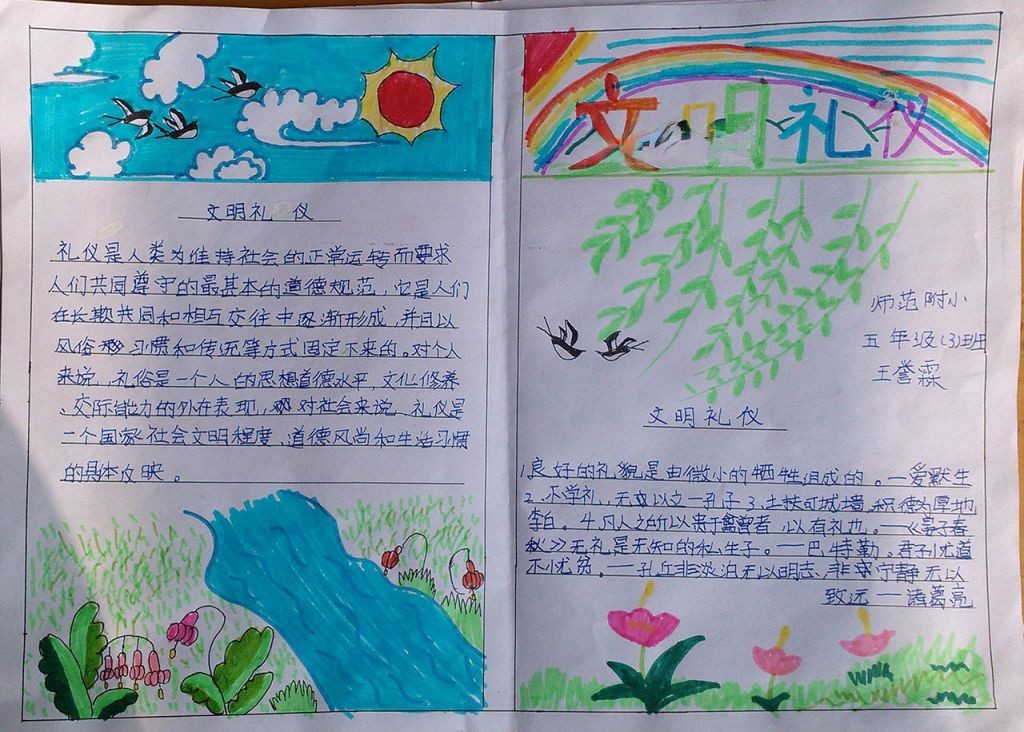 文明礼仪
礼仪是人类为维持社会的正常运转而要求
人们共同尊守的最基本的道德规范，它是人们
在长期共同和相互交往中逐渐形成，并且以
风俗 习惯和传统等方式固定下来的。对个人
来说，礼俗是一个人的思想道德水平，文化修养
、交际能力的外在表现，对社会来说，礼仪是
一个国家社会文明程度、道德风尚和生活习惯
的具体反映。
文明礼仪
师范附小
五年级(3)班
王誉霖
文明礼仪
1.良好的礼貌是由微小的牺牲组成的。—爱默生
2.不学礼，无以立—孔子 3.土扶可城墙，积德为厚地
李白。4.凡人之所以贵于禽兽者，以有礼也。—《晏子春
秋》无礼是无知的私生子。—巴特勒。君子忧道
不忧贫。—孔丘非淡泊无以明志，非宁静无以
致远—诸葛亮